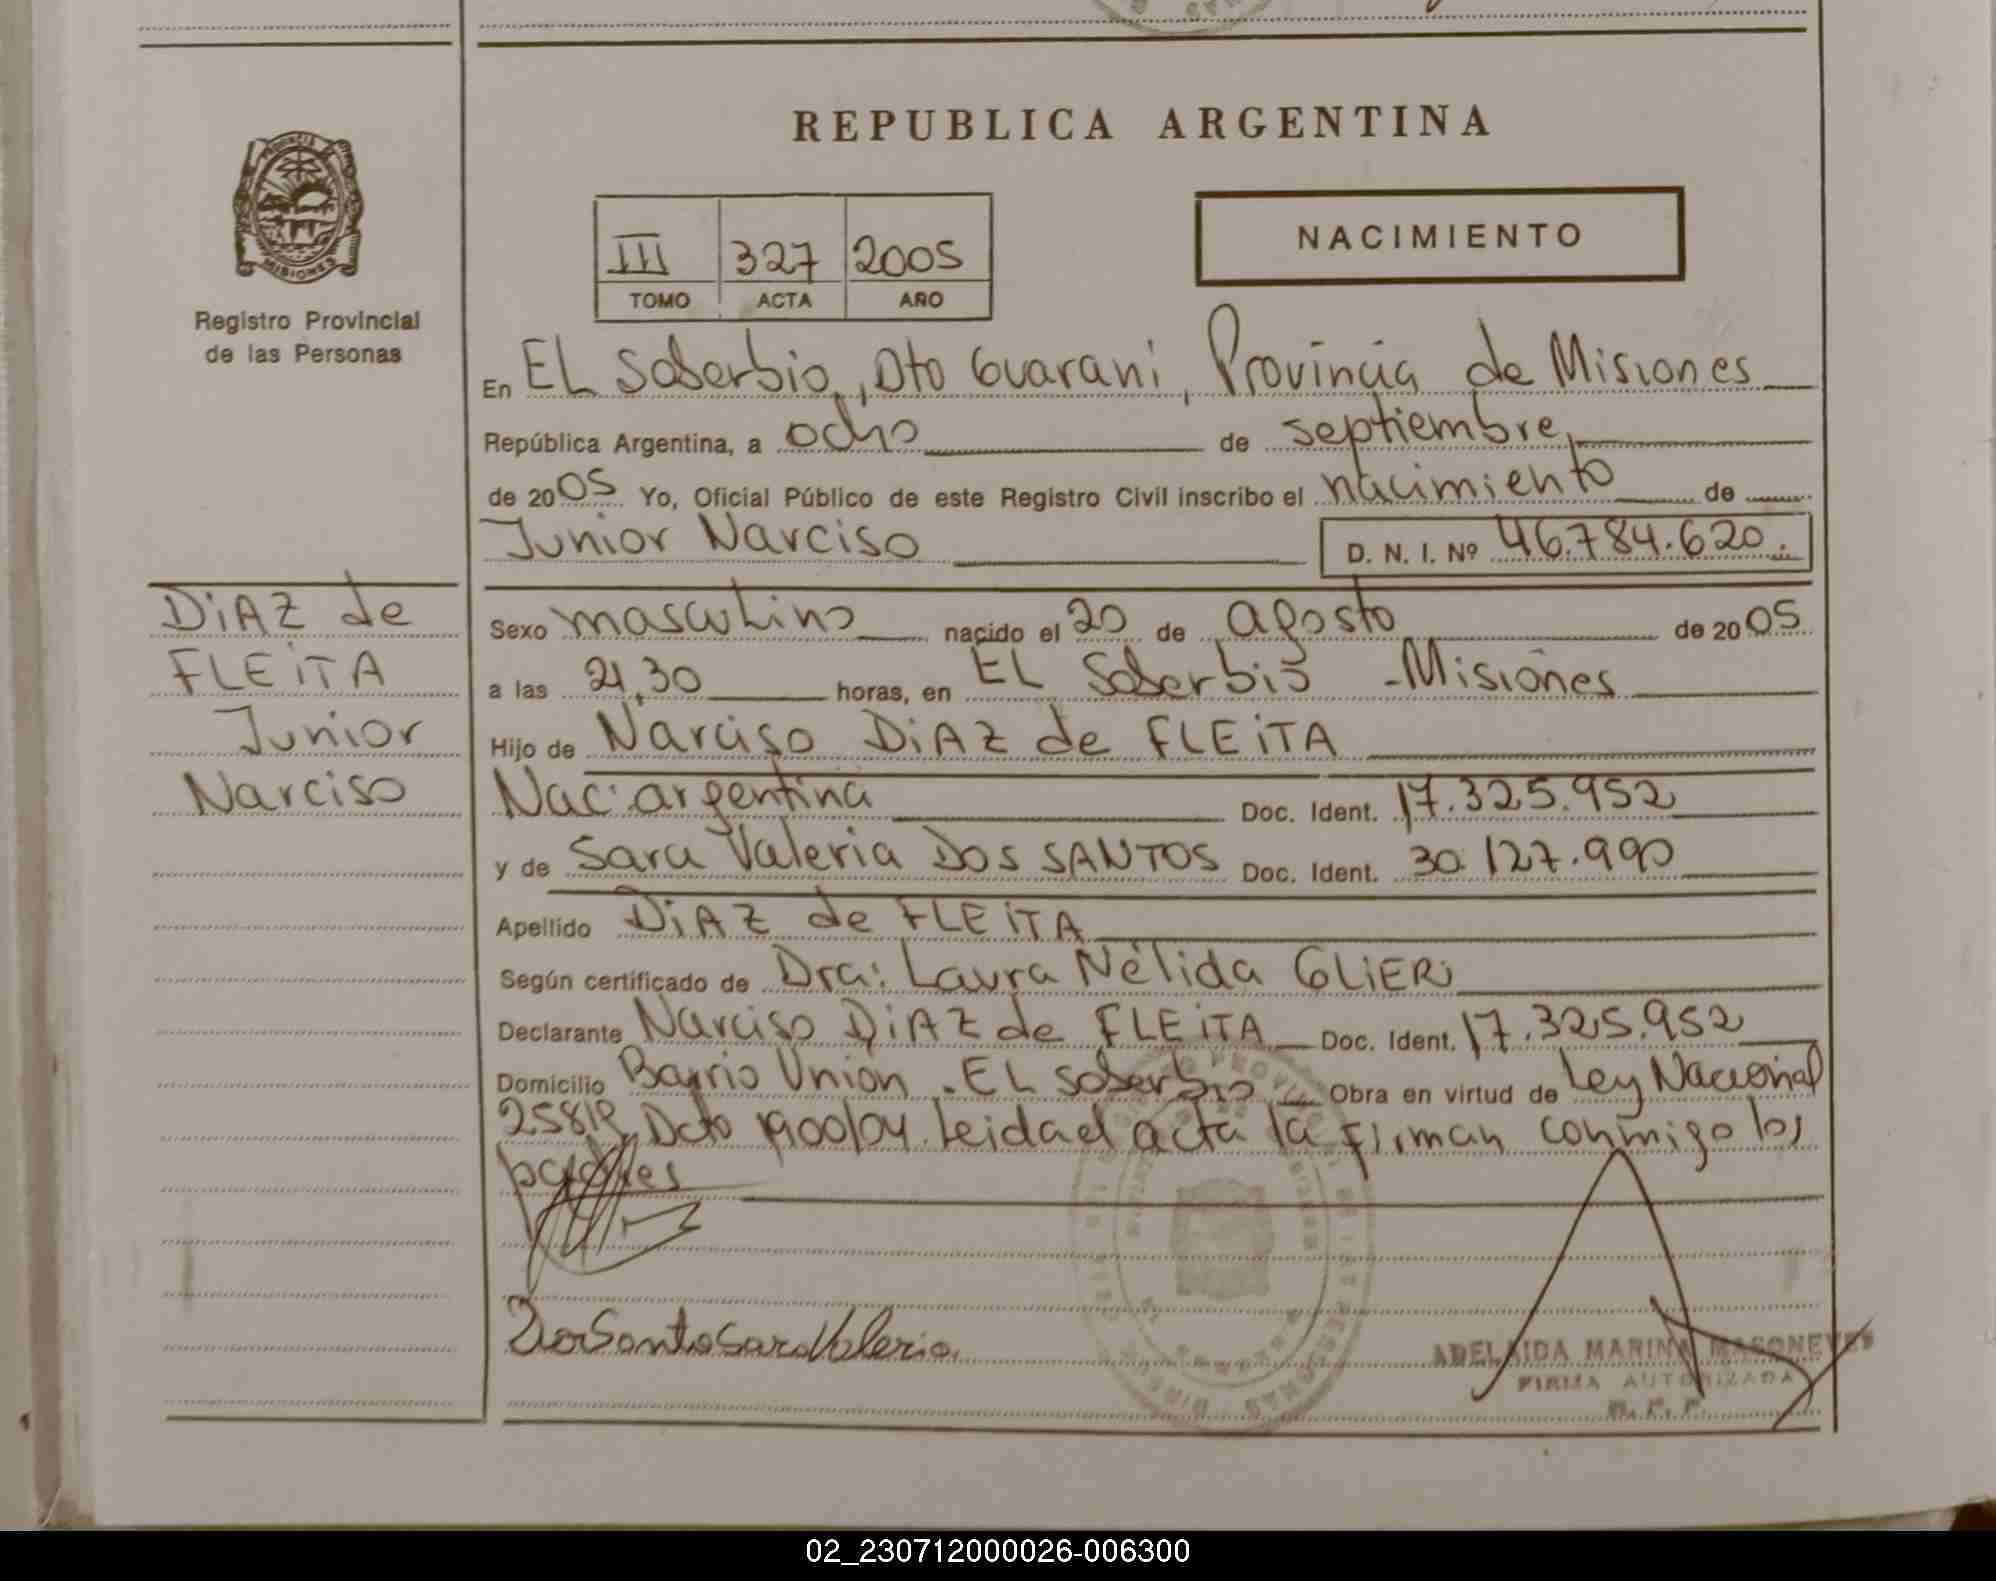 REPUBLICA ARGENTINA
PROVINCIA DE
MISIONES
Registro Provincial
de las Personas
III 327 2005
TOMO ACTA AÑO
NACIMIENTO
En EL Soberbio, Dto Guarani, Provincia de Misiones
República Argentina, a ocho de septiembre
de 2005 Yo, Oficial Público de este Registro Civil inscribo el nacimiento de
Junior Narciso D. N. I. Nº 46.784.620.
DiAZ de
FLEiTA
Junior
Narciso
Sexo masculino nacido el 20 de agosto de 2005
a las 21,30 horas, en EL Soberbio - Misiones
Hijo de Narciso DiAZ de FLEiTA
Nac. argentina Doc. Ident. 17.325.952
y de Sara Valeria DOS SANTOS Doc. Ident. 30.127.990
Apellido DiAZ de FLEiTA
Según certificado de Dra: Laura Nélida GLiER
Declarante Narciso DiAZ de FLEiTA Doc. Ident. 17.325.952
Domicilio Barrio Union - EL Soberbio Obra en virtud de Ley Nacional
25819 Dcto 1900/04. Leida el acta la firman conmigo los
padres
Dos Santos Sara Valeria
ADELAIDA MARINA
FIRMA AUTORIZADA
02_230712000026-006300